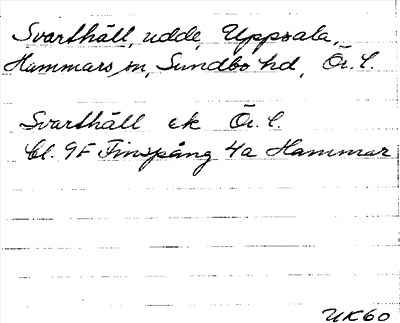 Svarthäll, udde, Uppsala,
Hammars sn, Sundbo hd, Ör. l.
Svarthäll ek Ör. l
bl. 9F Finspång 4a Hammar
UK60